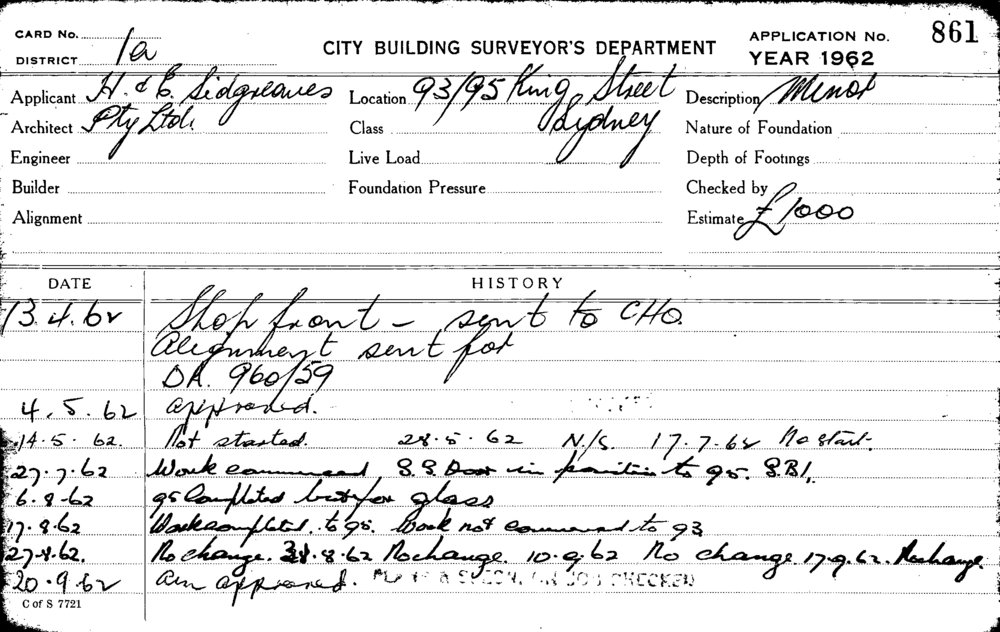 CARD No.
DISTRICT 1a
CITY BUILDING SURVEYOR'S DEPARTMENT
APPLICATION No. 861
YEAR 1962
Applicant H. & E. Sidgreaves
Location 93/95 King Street
Description Minor
Architect Pty Ltd.
Class Sydney
Nature of Foundation
Engineer
Live Load
Depth of Footings
Builder
Foundation Pressure
Checked by
Alignment
Estimate £1000
DATE HISTORY
13.4.62 Shop front - sent to CHO.
Alignment sent for
DA. 960/59
4.5.62 approved.
14.5.62. Not started. 28.5.62 N/S. 17.7.62 No start.
27.7.62 Work commenced S.S. Door in position to 95.
6.8.62 95 Completed but for glass
17.8.62 Work completed to 95. Work not commenced to 93
27.8.62. No change. 31.8.62 No change. 10.9.62 No change 17.9.62. No change.
20.9.62 am approved. PLANS & SPECN. ON JOB CHECKED
C of S 7721